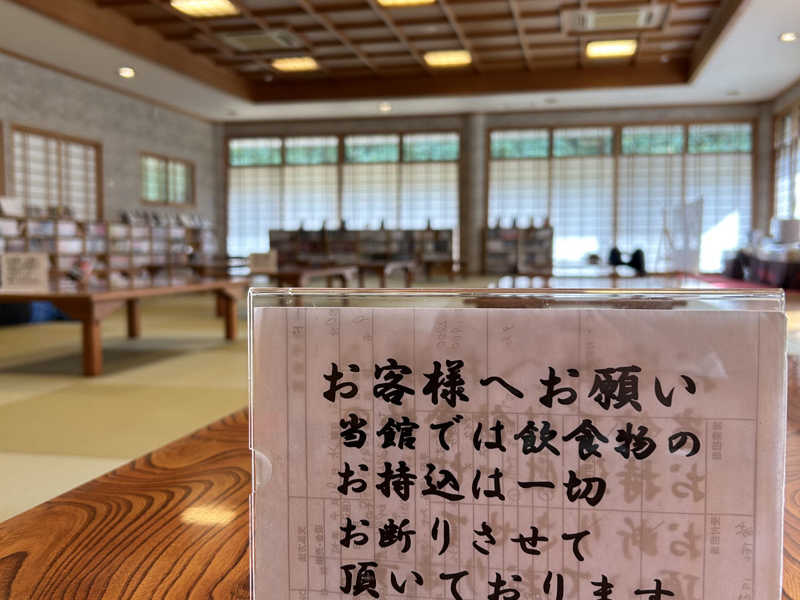 お客様へお願い
当館では飲食物の
お持込は一切
お断りさせて
頂いております